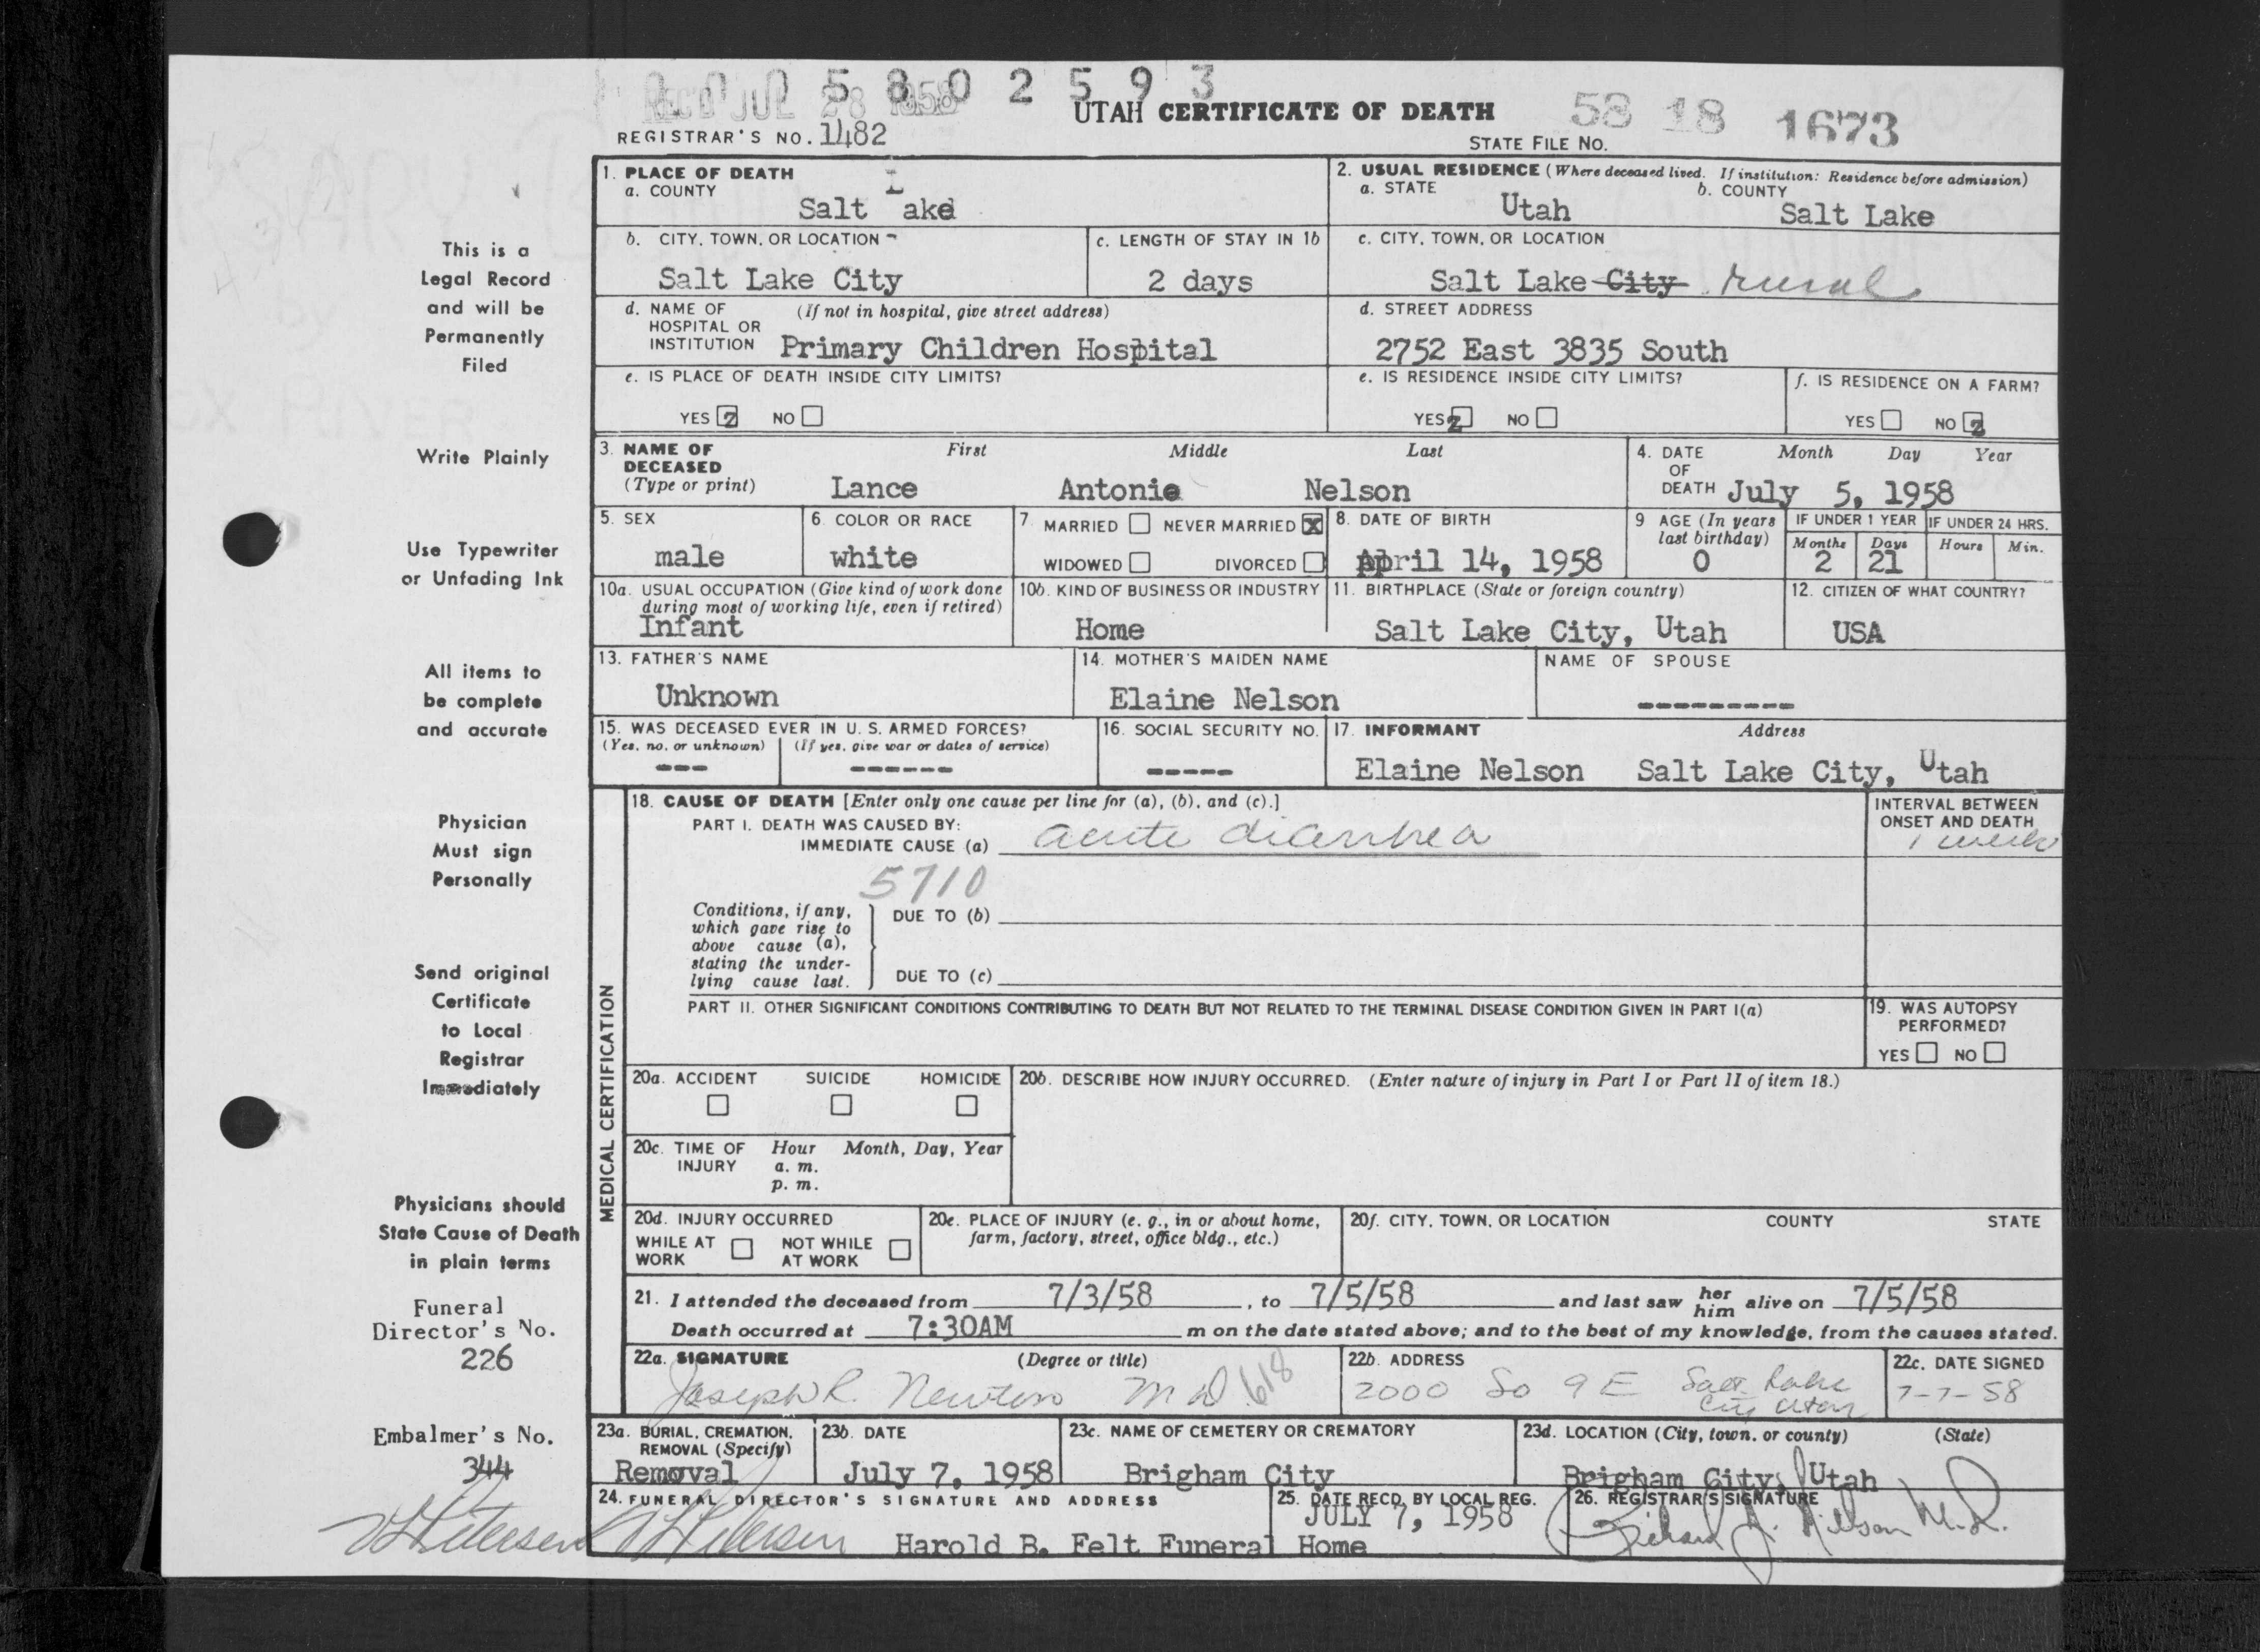 0 0 0 5 8 0 2 5 9 3
REC'D JUL 28 1958
UTAH CERTIFICATE OF DEATH
58 18 1673
REGISTRAR'S NO. 1482
STATE FILE NO.
1. PLACE OF DEATH
a. COUNTY
Salt Lake
2. USUAL RESIDENCE (Where deceased lived. If institution: Residence before admission)
a. STATE
Utah
b. COUNTY
Salt Lake
b. CITY, TOWN, OR LOCATION
Salt Lake City
c. LENGTH OF STAY IN 1b
2 days
c. CITY, TOWN, OR LOCATION
Salt Lake City rural
d. NAME OF HOSPITAL OR INSTITUTION (If not in hospital, give street address)
Primary Children Hospital
d. STREET ADDRESS
2752 East 3835 South
e. IS PLACE OF DEATH INSIDE CITY LIMITS?
YES Z NO
e. IS RESIDENCE INSIDE CITY LIMITS?
YES Z NO
f. IS RESIDENCE ON A FARM?
YES NO Z
3. NAME OF DECEASED (Type or print)
First Middle Last
Lance Antonio Nelson
4. DATE OF DEATH
Month Day Year
July 5, 1958
5. SEX
male
6. COLOR OR RACE
white
7. MARRIED NEVER MARRIED X
WIDOWED DIVORCED
8. DATE OF BIRTH
April 14, 1958
9 AGE (In years last birthday)
0
IF UNDER 1 YEAR
Months Days
2 21
IF UNDER 24 HRS.
Hours Min.
10a. USUAL OCCUPATION (Give kind of work done during most of working life, even if retired)
Infant
10b. KIND OF BUSINESS OR INDUSTRY
Home
11. BIRTHPLACE (State or foreign country)
Salt Lake City, Utah
12. CITIZEN OF WHAT COUNTRY?
USA
13. FATHER'S NAME
Unknown
14. MOTHER'S MAIDEN NAME
Elaine Nelson
NAME OF SPOUSE
---------
15. WAS DECEASED EVER IN U. S. ARMED FORCES?
(Yes, no, or unknown) (If yes, give war or dates of service)
--- ------
16. SOCIAL SECURITY NO.
-----
17. INFORMANT Address
Elaine Nelson Salt Lake City, Utah
MEDICAL CERTIFICATION
18. CAUSE OF DEATH [Enter only one cause per line for (a), (b), and (c).]
PART I. DEATH WAS CAUSED BY:
IMMEDIATE CAUSE (a) acute diarrhea
INTERVAL BETWEEN ONSET AND DEATH
1 week
5710
Conditions, if any, which gave rise to above cause (a), stating the underlying cause last.
DUE TO (b)
DUE TO (c)
PART II. OTHER SIGNIFICANT CONDITIONS CONTRIBUTING TO DEATH BUT NOT RELATED TO THE TERMINAL DISEASE CONDITION GIVEN IN PART I(a)
19. WAS AUTOPSY PERFORMED?
YES NO
20a. ACCIDENT SUICIDE HOMICIDE
20b. DESCRIBE HOW INJURY OCCURRED. (Enter nature of injury in Part I or Part II of item 18.)
20c. TIME OF INJURY Hour Month, Day, Year
a. m.
p. m.
20d. INJURY OCCURRED
WHILE AT WORK NOT WHILE AT WORK
20e. PLACE OF INJURY (e. g., in or about home, farm, factory, street, office bldg., etc.)
20f. CITY, TOWN, OR LOCATION COUNTY STATE
21. I attended the deceased from 7/3/58, to 7/5/58 and last saw her him alive on 7/5/58
Death occurred at 7:30AM m on the date stated above; and to the best of my knowledge, from the causes stated.
22a. SIGNATURE (Degree or title)
Joseph R. Newton M D 618
22b. ADDRESS
2000 So 9 E Salt Lake City Utah
22c. DATE SIGNED
7-7-58
23a. BURIAL, CREMATION, REMOVAL (Specify)
Removal
23b. DATE
July 7, 1958
23c. NAME OF CEMETERY OR CREMATORY
Brigham City
23d. LOCATION (City, town, or county) (State)
Brigham City, Utah
24. FUNERAL DIRECTOR'S SIGNATURE AND ADDRESS
Harold B. Felt Funeral Home
25. DATE RECD. BY LOCAL REG.
JULY 7, 1958
26. REGISTRAR'S SIGNATURE
This is a
Legal Record
and will be
Permanently
Filed
Write Plainly
Use Typewriter
or Unfading Ink
All items to
be complete
and accurate
Physician
Must sign
Personally
Send original
Certificate
to Local
Registrar
Immediately
Physicians should
State Cause of Death
in plain terms
Funeral
Director's No.
226
Embalmer's No.
344